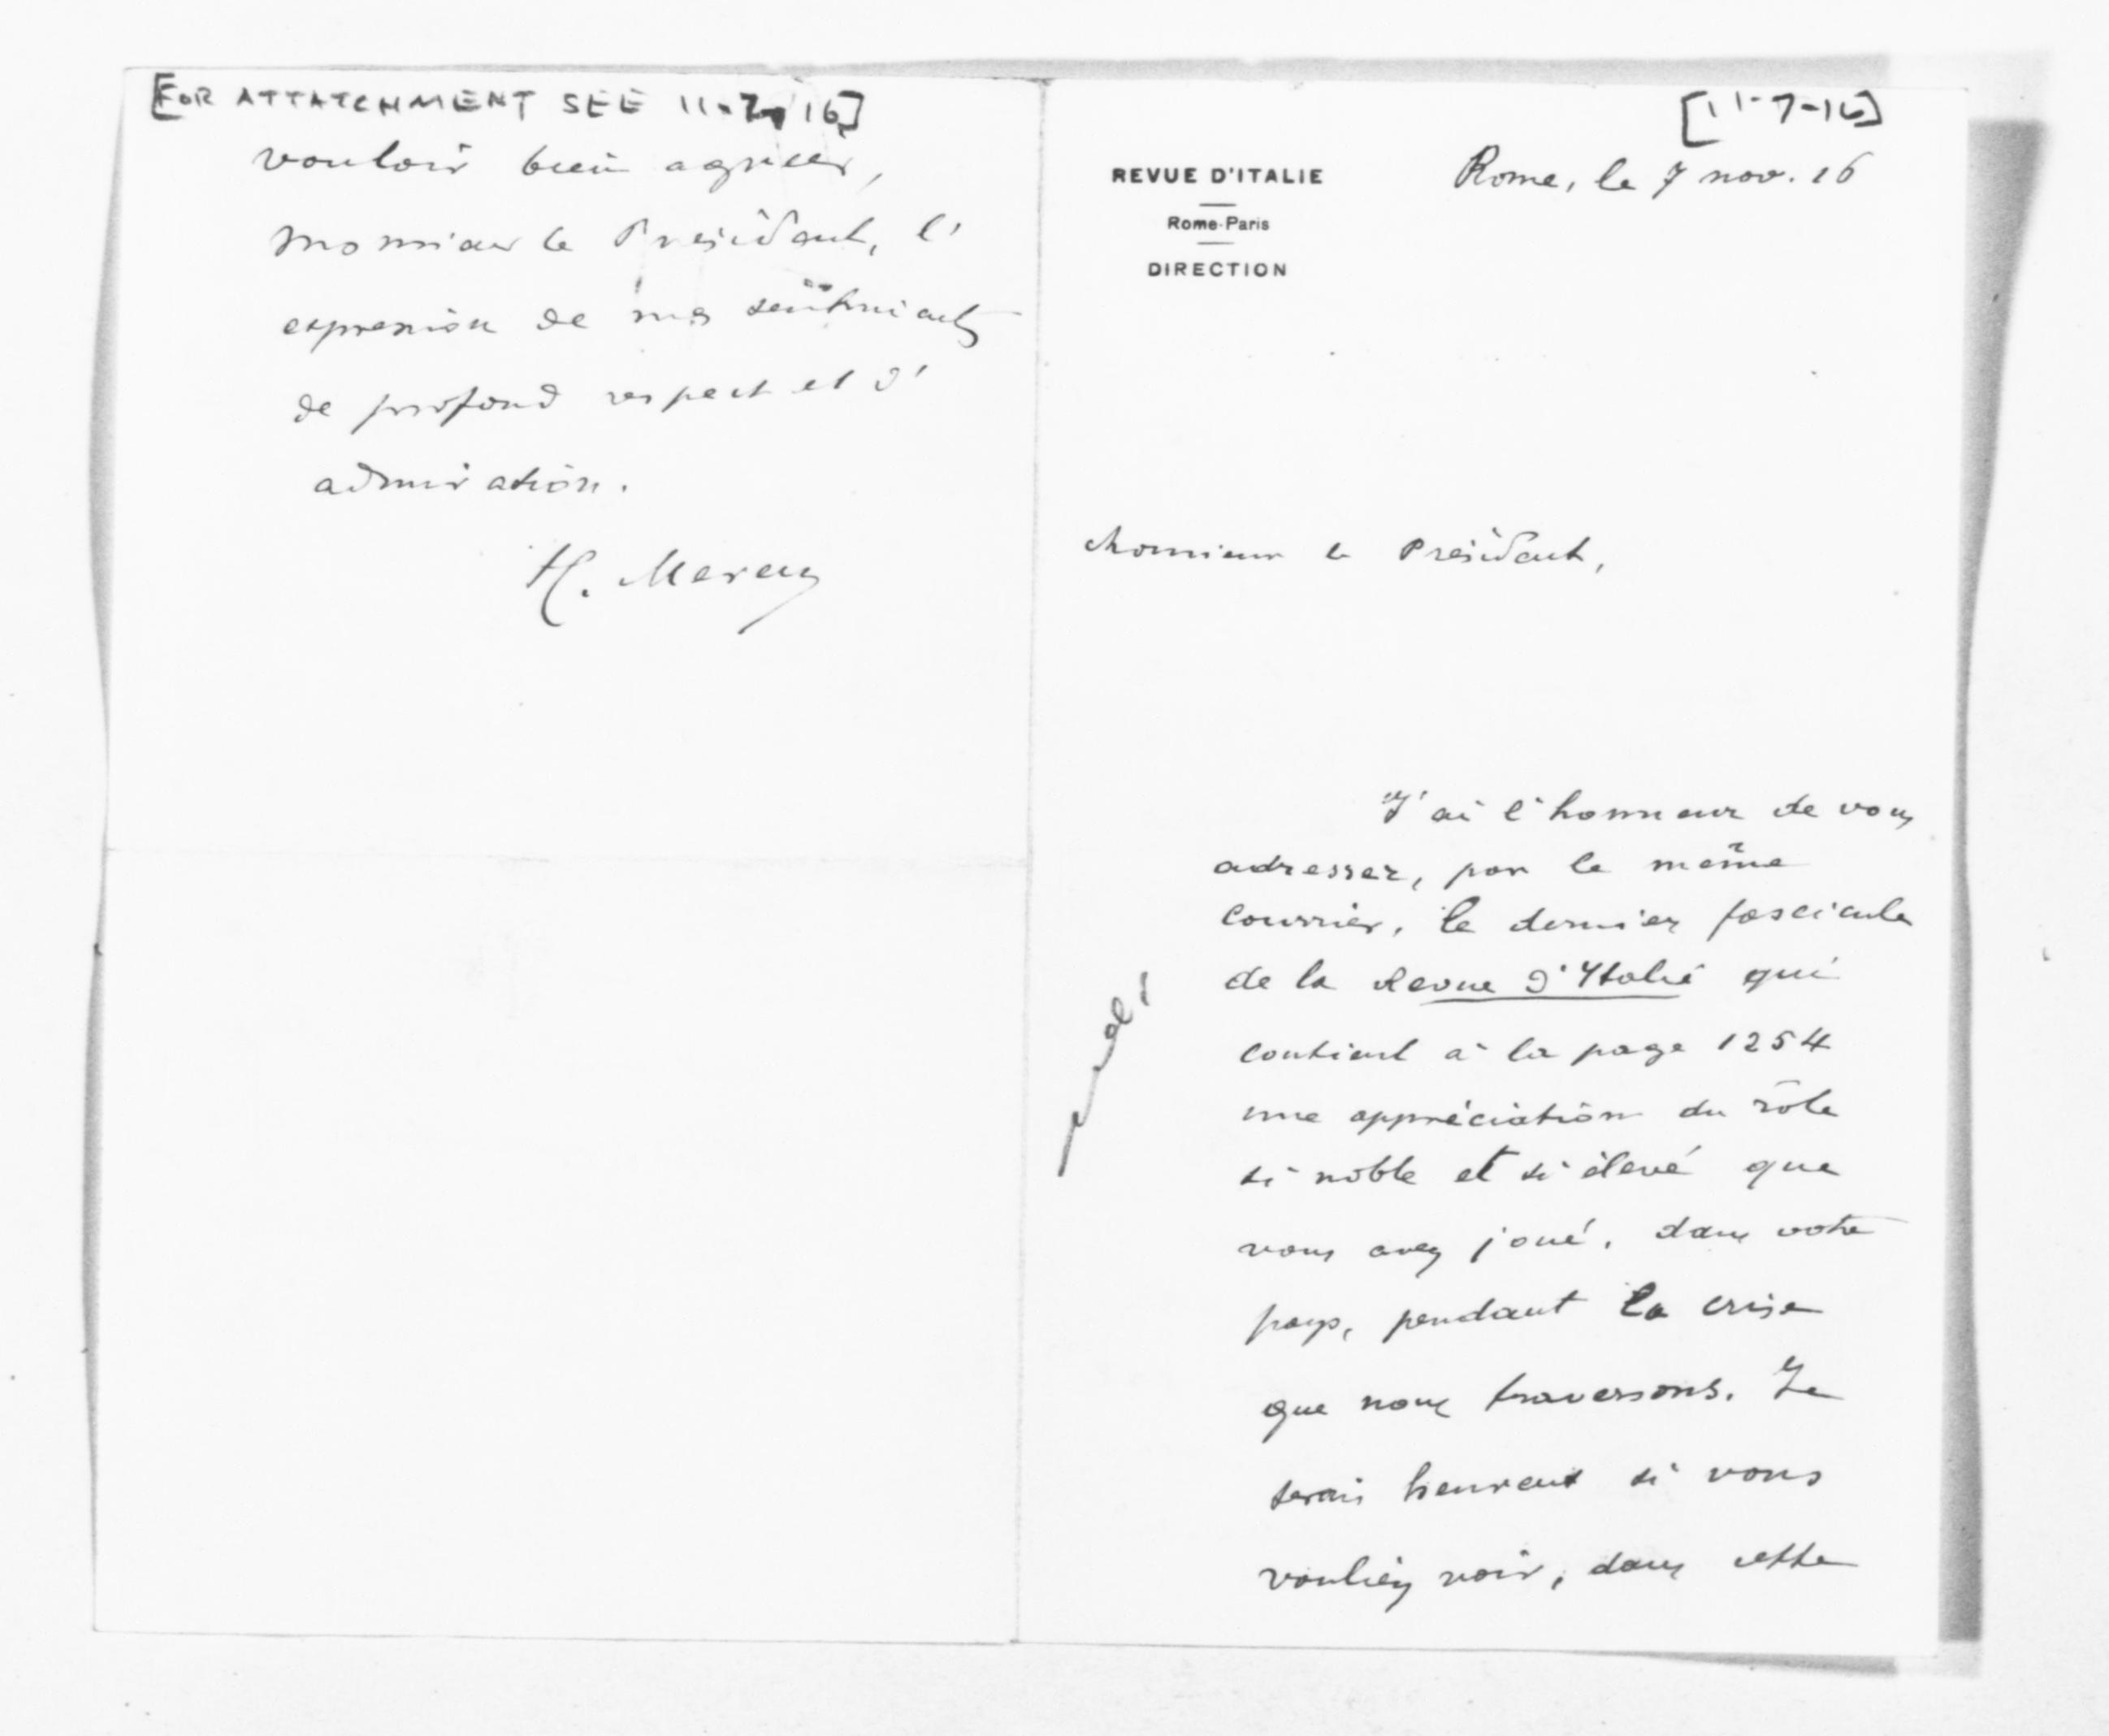 [FOR ATTATCHMENT SEE 11-7-16]
vouloir bien agréer,
Monsieur le Président, l'
expression de mes sentiments
de profond respect et d'
admiration.
[11-7-16]
REVUE D'ITALIE
Rome-Paris
DIRECTION
Rome, le 7 nov. 16
Monsieur le Président,
J'ai l'honneur de vous
adresser, par le même
courrier, le dernier fascicule
de la Revue d'Italie qui
contient à la page 1254
une appréciation du rôle
si noble et si élevé que
vous avez joué, dans votre
pays, pendant la crise
que nous traversons. Je
serais heureux si vous
vouliez voir, dans cette